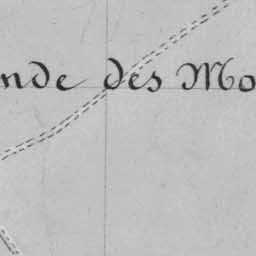 nde des Mo